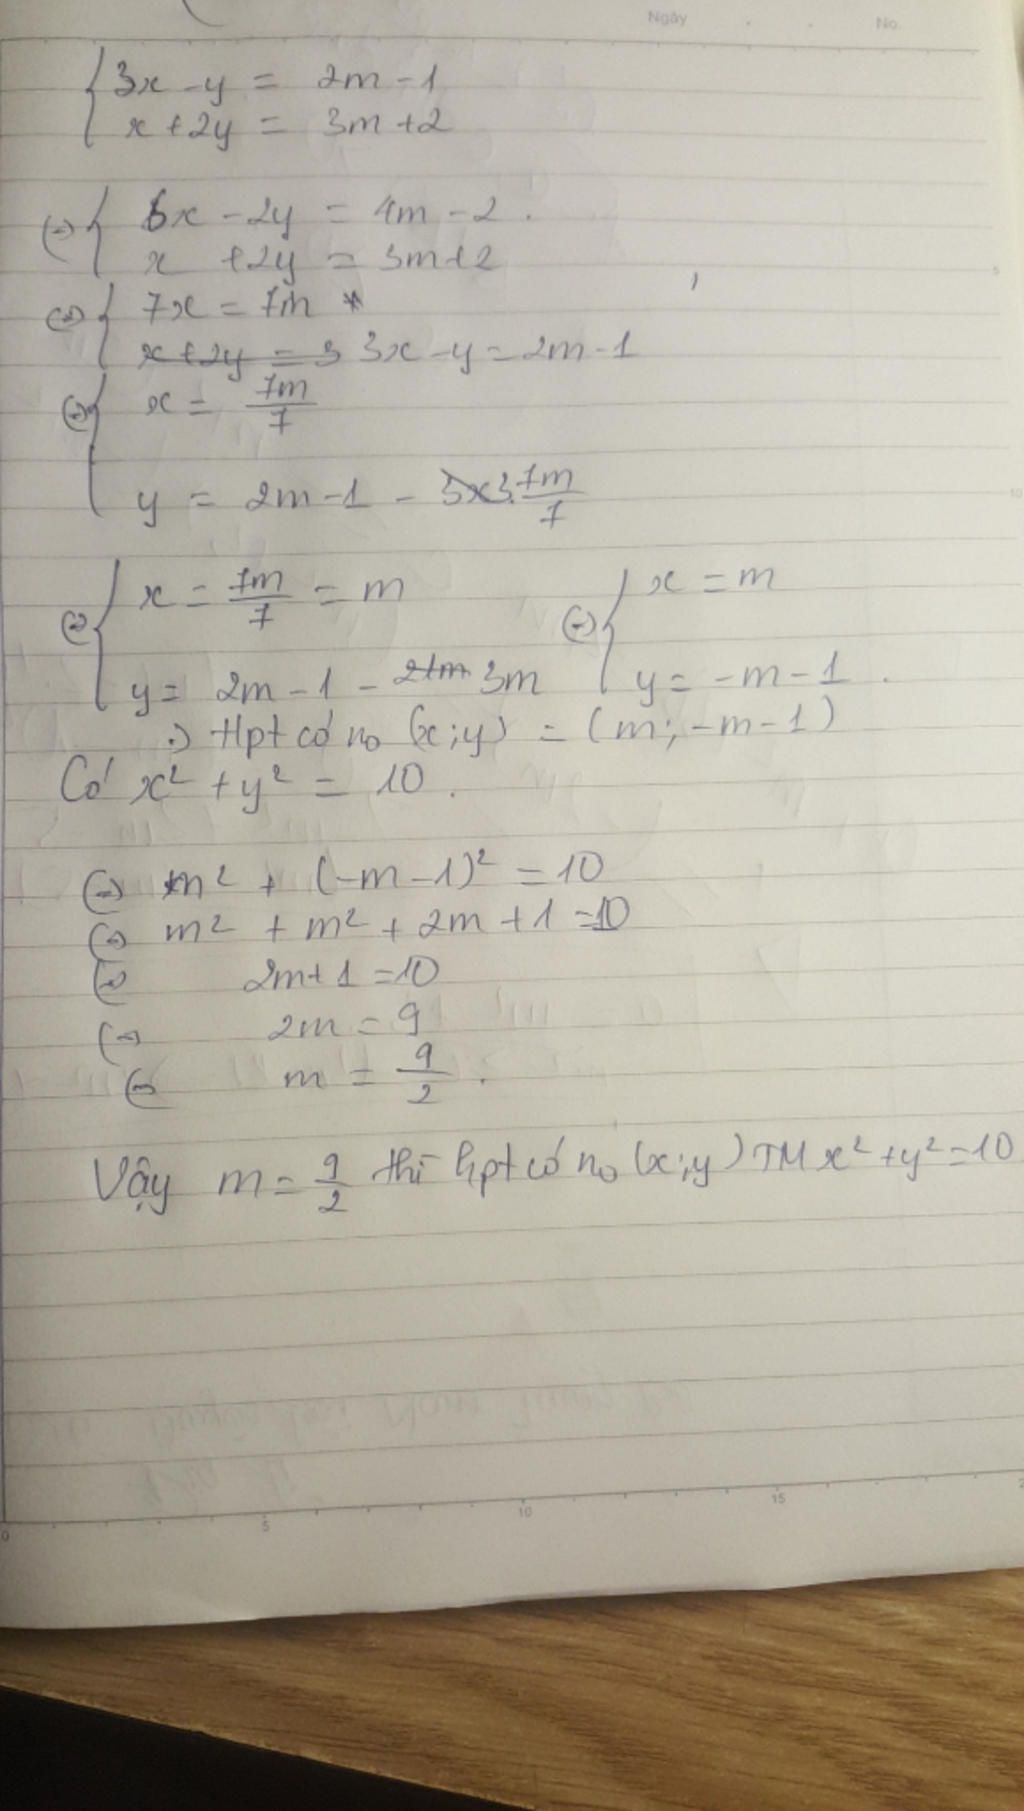 Ngày No.
{ 3x - y = 2m - 1
x + 2y = 3m + 2
(=) { 6x - 2y = 4m - 2 .
x + 2y = 3m + 2
(=) { 7x = 7m *
x + 2y = 3 3x - y = 2m - 1
(=) { x = 7m/7
y = 2m - 1 - 3x3.7m/7
(=) { x = 7m/7 = m (=) { x = m
y = 2m - 1 - 21m 3m y = -m - 1 .
=) Hpt có no (x;y) = (m; -m - 1)
Có x² + y² = 10 .
(=) m² + (-m - 1)² = 10
(=) m² + m² + 2m + 1 = 10
(=) 2m + 1 = 10
(=) 2m = 9
(=) m = 9/2 .
Vậy m = 9/2 thì hpt có no (x;y) TM x² + y² = 10
0 5 10 15